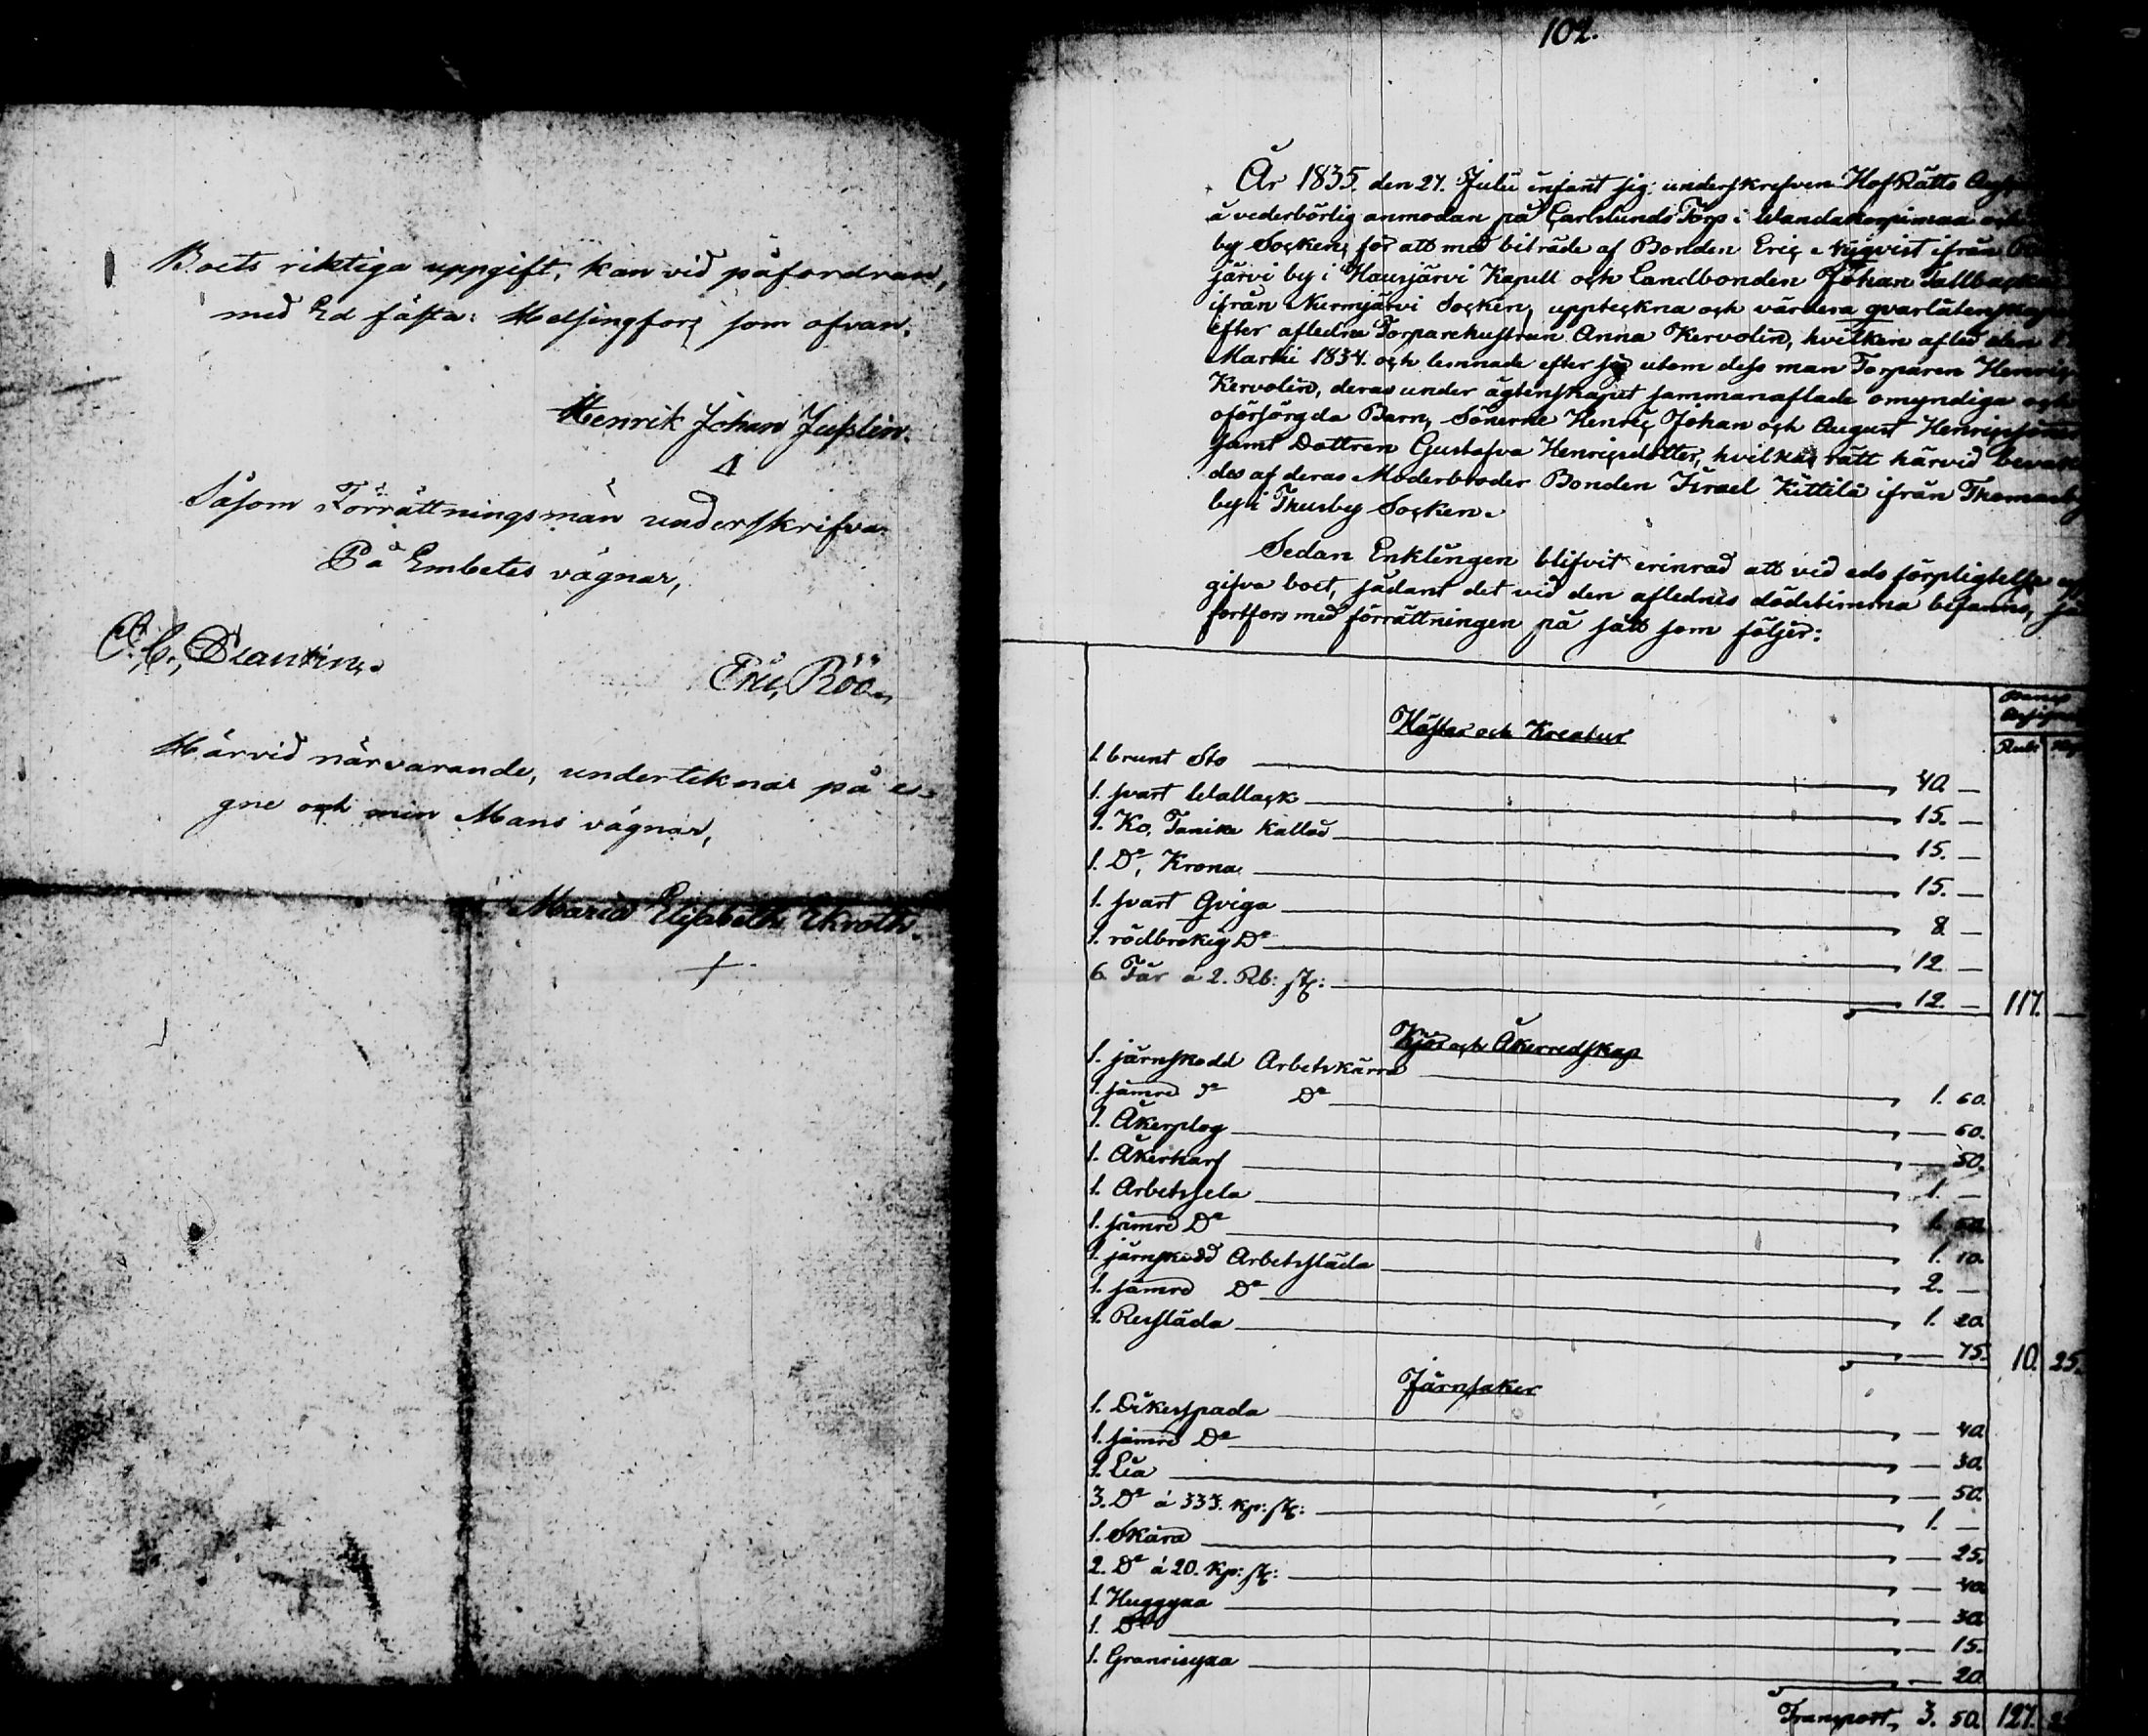 Boets riktiga uppgift, kan vid påfordran,
med Ed fästa: Helsingfors som ofvan.
Henrik Johan Juslin.
Såsom Förrättningsmän underskrifva
På Embetes vägnar,
Eric Röö
Härvid närvarande, underteknar på e-
gne och min Mans vägnar,
Maria Elisabeth Ekroth.
102.
År 1835. den 27. Julii infant sig underskrefven HofRätts
å vederbörlig anmodan på Carlslunds Torp i Wandakorpimaa
by Socken, för att med biträde af Bonden Eric Nyqvist ifrån
järvi by i Hausjärvi Kapell och Landbonden Johan Tallbacka
ifrån Nurmjärvi Socken, uppteckna och värdera qvarlåtenskapen
efter aflidna Torparehustrun Anna Kervolin, hvilken afled den
Martii 1834. och lemnade efter sig utom dess man Torparen Henric
Kervolin, deras under ägtenskapet sammanaflade omyndiga och
oförsörgda Barn, Sönerne Henric Johan och August Henricssöner
samt Dottren Gustafva Henricsdotter, hvilkas rätt härvid bevak-
des af deras Moderbroder Bonden Israel Kittilä ifrån Thomasby
by i Thusby Socken.
Sedan Enklingen blifvit erinrad att vid eds förpligtelse upp
gifva boet, sådant det vid den aflednes dödstimma befanns, så
fortfors med förrättningen på sätt som följer:
Banco Assignat
Rub: Kop
Hästar och Kreatur
1. brunt Sto 40. —
1. svart Wallack 15. —
1. Ko, Tanike kallad 15. —
1. D°, Krona 15. —
1. svart Qviga 8. —
1. rödbrokig D° 12. —
6. Får á 2. Rb: st: 12. — 117. —
Kjör och Åkerredskap
1. järnskodd Arbetskärra 1. 60.
1. sämre d° D° — 60.
1. Åkerplog — 50.
1. Åkerharf 1. —
1. Arbetssela 1. 50.
1. sämre D° 1. 10.
1. järnskodd Arbetssläda 2. —
1. sämre D° 1. 20.
1. Ressläda — 75. 10. 25.
Järnsaker
1. Dikesspada — 40.
1. sämre D° — 30.
1. Lia — 50.
3. D° á 33⅓. Kp: st: 1. —
1. Skära — 25.
2. D° á 20. Kp: st: — 40.
1. Huggyxa — 30.
1. D° — 15.
1. Granrisyxa — 20.
Transport, 3. 50. 127.